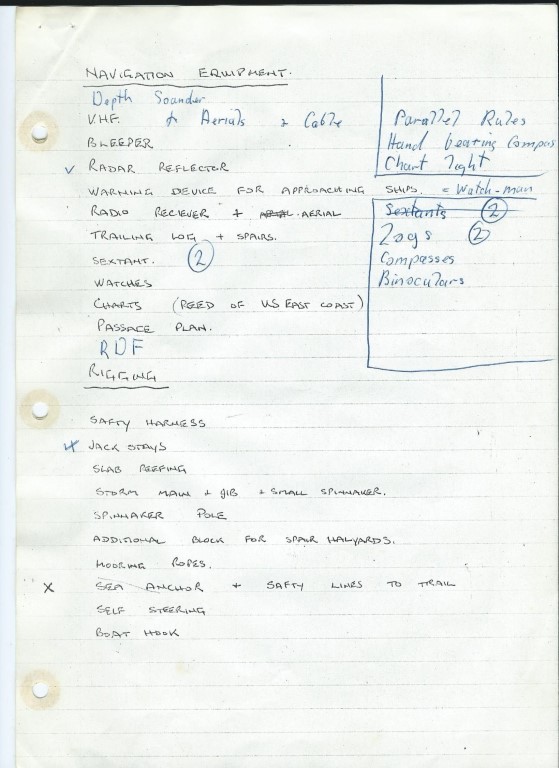 NAVIGATION EQUIPMENT.
Depth Sounder
VHF. & Aerials + Cable
BLEEPER
✓ RADAR REFLECTOR
WARNING DEVICE FOR APPROACHING SHIPS. = Watch-man
RADIO RECIEVER + AERIAL
TRAILING LOG + SPAIRS.
SEXTANT. 2
WATCHES
CHARTS (REED OF US EAST COAST)
PASSAGE PLAN.
RDF
Parallel Rules
Hand bearing Compas
Chart light
Sextants 2
Logs 2
Compasses
Binoculars
RIGGING
SAFTY HARNESS
JACK STAYS
SLAB REEFING
STORM MAIN + JIB + SMALL SPINNAKER.
SPINNAKER POLE
ADDITIONAL BLOCK FOR SPAIR HALYARDS.
MOORING ROPES.
X SEA ANCHOR + SAFTY LINES TO TRAIL
SELF STEERING
BOAT HOOK